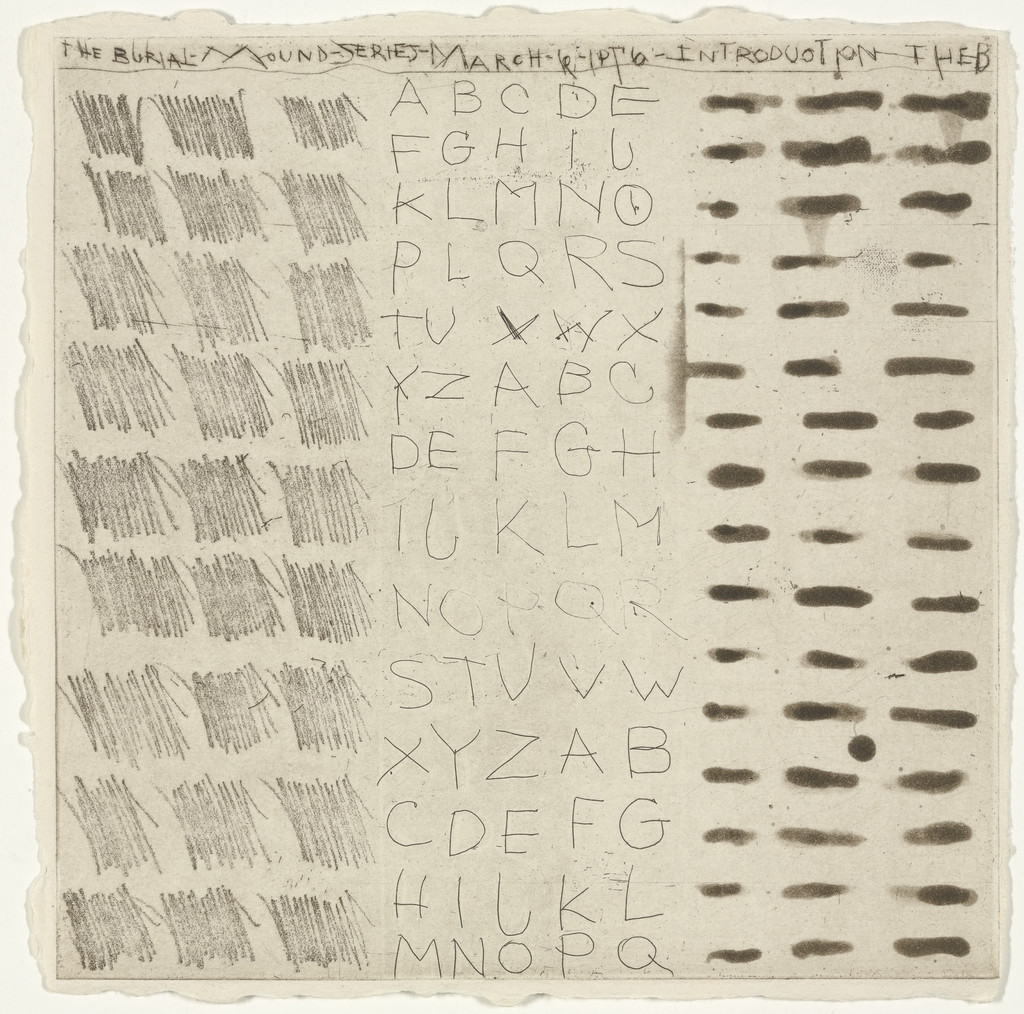 THE BURIAL-MOUND-SERIES-MARCH- -INTRODUCTION THEB
A B C D E
F G H I J
K L M N O
P L Q R S
T U X W X
Y Z A B C
D E F G H
I J K L M
N O P Q R
S T U V W
X Y Z A B
C D E F G
H I J K L
M N O P Q